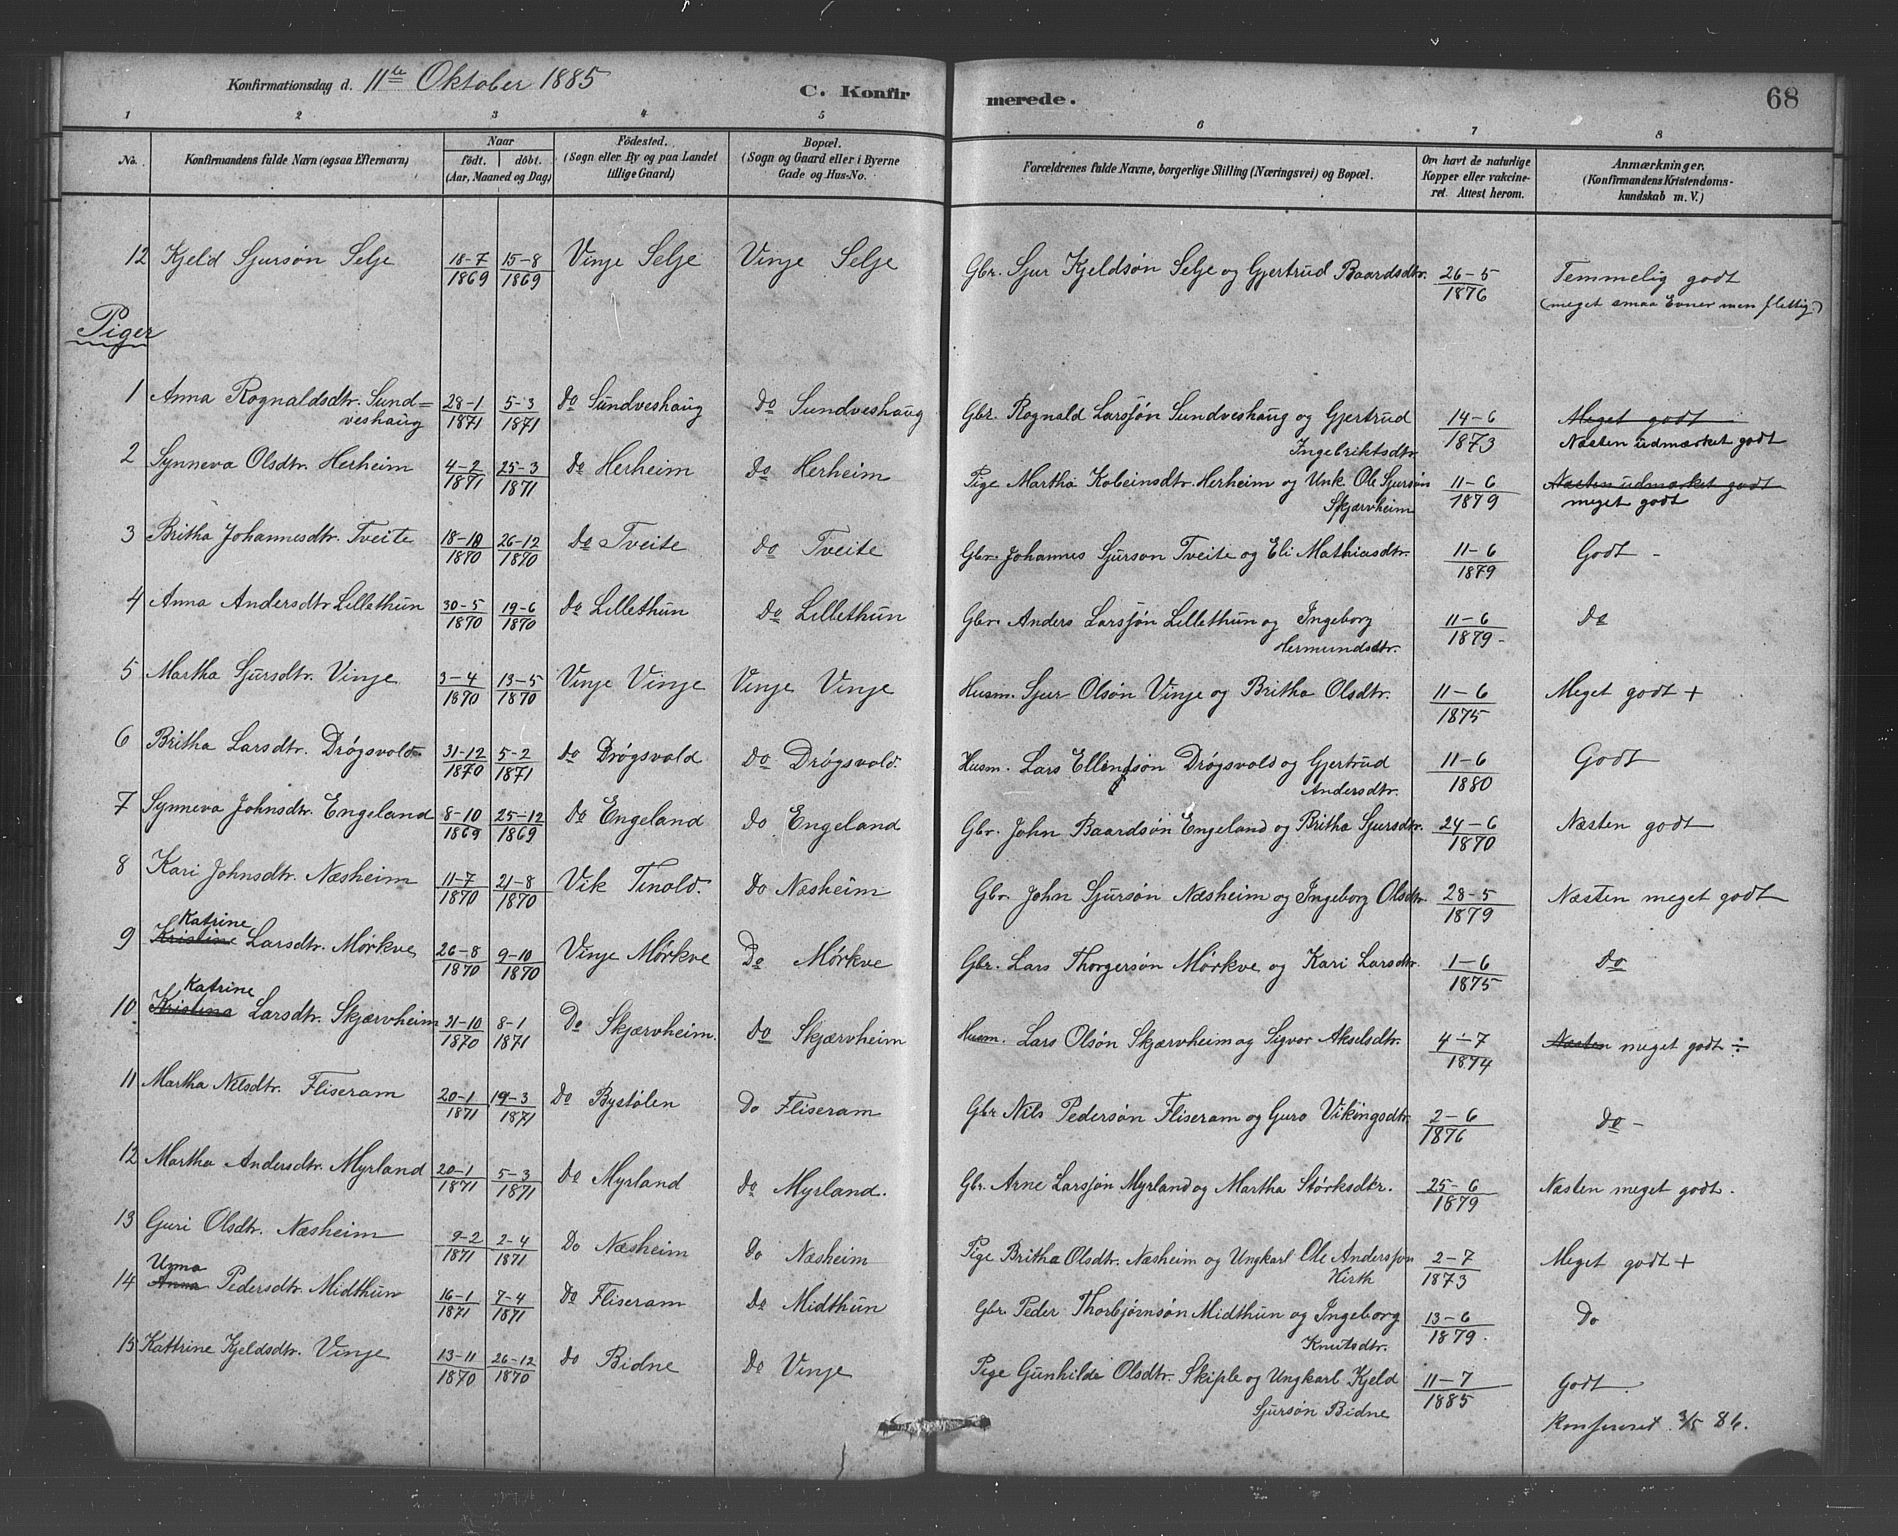 Konfirmationsdag d. 11te Oktober 1885 C. Konfirmerede. 68
1 2 3 4 5 6 7 8
No. Konfirmandens fulde Navn (ogsaa Efternavn) Naar født. | döbt. (Aar, Maaned og Dag) Födested. (Sogn eller By og paa Landet tillige Gaard) Bopæl. (Sogn og Gaard eller i Byerne Gade og Hus-No. Forældrenes fulde Navne, borgerlige Stilling (Næringsvei) og Bopæl. Om havt de naturlige Kopper eller vakcineret. Attest herom. Anmærkninger. (Konfirmandens Kristendomskundskab m. V.)
12 Kjeld Sjursøn Selje 18-7 1869 15-8 1869 Vinje Selje Vinje Selje Gbr. Sjur Kjeldsøn Selje og Gjertrud Baardsdtr. 26-5 1876 Temmelig godt (meget smaa Evner men flittig.)
Piger
1 Anna Rognaldsdtr. Sundveshaug 28-1 1871 5-3 1871 do Sundveshaug do Sundveshaug Gbr. Rognald Larssøn Sundveshaug og Gjertrud Ingebriktsdtr 14-6 1873 Meget godt Næsten udmærket godt
2 Synneva Olsdtr. Herheim 4-2 1871 25-3 1871 do Herheim do Herheim Pige Martha Kolbeinsdtr. Herheim og Unk. Ole Sjursøn Skjærvheim 11-6 1879 Næsten udmærket godt meget godt
3 Britha Johannesdtr. Tveite 18-10 1870 26-12 1870 do Tveite do Tveite Gbr. Johannes Sjurson Tveite og Eli Mathiasdtr. 11-6 1879 Godt -
4 Anna Andersdtr Lillethun 30-5 1870 19-6 1870 do Lillethun do Lillethun Gbr. Anders Larssøn Lillethun og Ingeborg Hermundsdtr. 11-6 1879- do
5 Martha Sjursdtr. Vinje 3-4 1870 13-5 1870 Vinje Vinje Vinje Vinje Husm. Sjur Olsøn Vinje og Britha Olsdtr. 11-6 1875 Meget godt +
6 Britha Larsdtr. Drøgsvold 31-12 1870 5-2 1871 do Drøgsvold do Drøgsvold. Husm. Lars Ellensøn Drøgsvold og Gjertrud Andersdtr. 11-6 1880 Godt
7 Synneva Johnsdtr. Engeland 8-10 1869 25-12 1869 do Engeland do Engeland Gbr. John Baardsøn Engeland og Britha Sjursdtr. 24-6 1870 Næsten godt
8 Kari Johnsdtr. Næsheim 11-7 1870 21-8 1870 Vik Tenold. do Næsheim Gbr. John Sjursøn Næsheim og Ingeborg Olsdtr 28-5 1879 Næsten meget godt
9 Kristine Katrine Larsdtr. Mørkve 26-8 1870 9-10 1870 Vinje Mørkve do Mørkve Gbr. Lars Thorgersøn Mørkve og Kari Larsdtr. 1-6 1875 do
10 Kristina Katrine Larsdtr. Skjærvheim 31-10 1870 8-1 1871 do Skjærvheim. do Skjærvheim Husm. Lars Olsøn Skjærvheim og Sigvor Akselsdtr. 4-7 1874 Næsten meget godt ÷
11 Martha Nilsdtr. Fliseram 20-1 1871 19-3 1871 do Bystølen do Fliseram Gbr Nils Pedersøn Fliseram og Guro Vikingsdtr 2-6 1876 do -
12 Martha Andersdtr. Myrland 20-1 1871 5-3 1871 do Myrland do Myrland. Gbr. Arne Larssøn Myrland og Martha Størksdtr. 25-6 1879 Næsten meget godt.
13 Guri Olsdtr. Næsheim 9-2 1871 2-4 1871 do Næsheim do Næsheim Pige Britha Olsdtr. Næsheim og Ungkarl Ole Anderssøn Hirth 2-7 1873 Meget godt +
14 Anna Unna Pedersdtr. Midthun 16-1 1871 7-4 1871 do Fliseram do Midthun Gbr. Peder Thorbjørnsøn Midthun og Ingeborg Knutsdtr. 13-6 1879. do
15 Kattrine Kjeldsdtr. Vinje 13-11 1870 26-12 1870 do Bidne do Vinje Pige Gunhilde Olsdtr. Skiple og Ungkarl Kjeld Sjursøn Bidne 11-7 1885 Godt. 3/5 86.